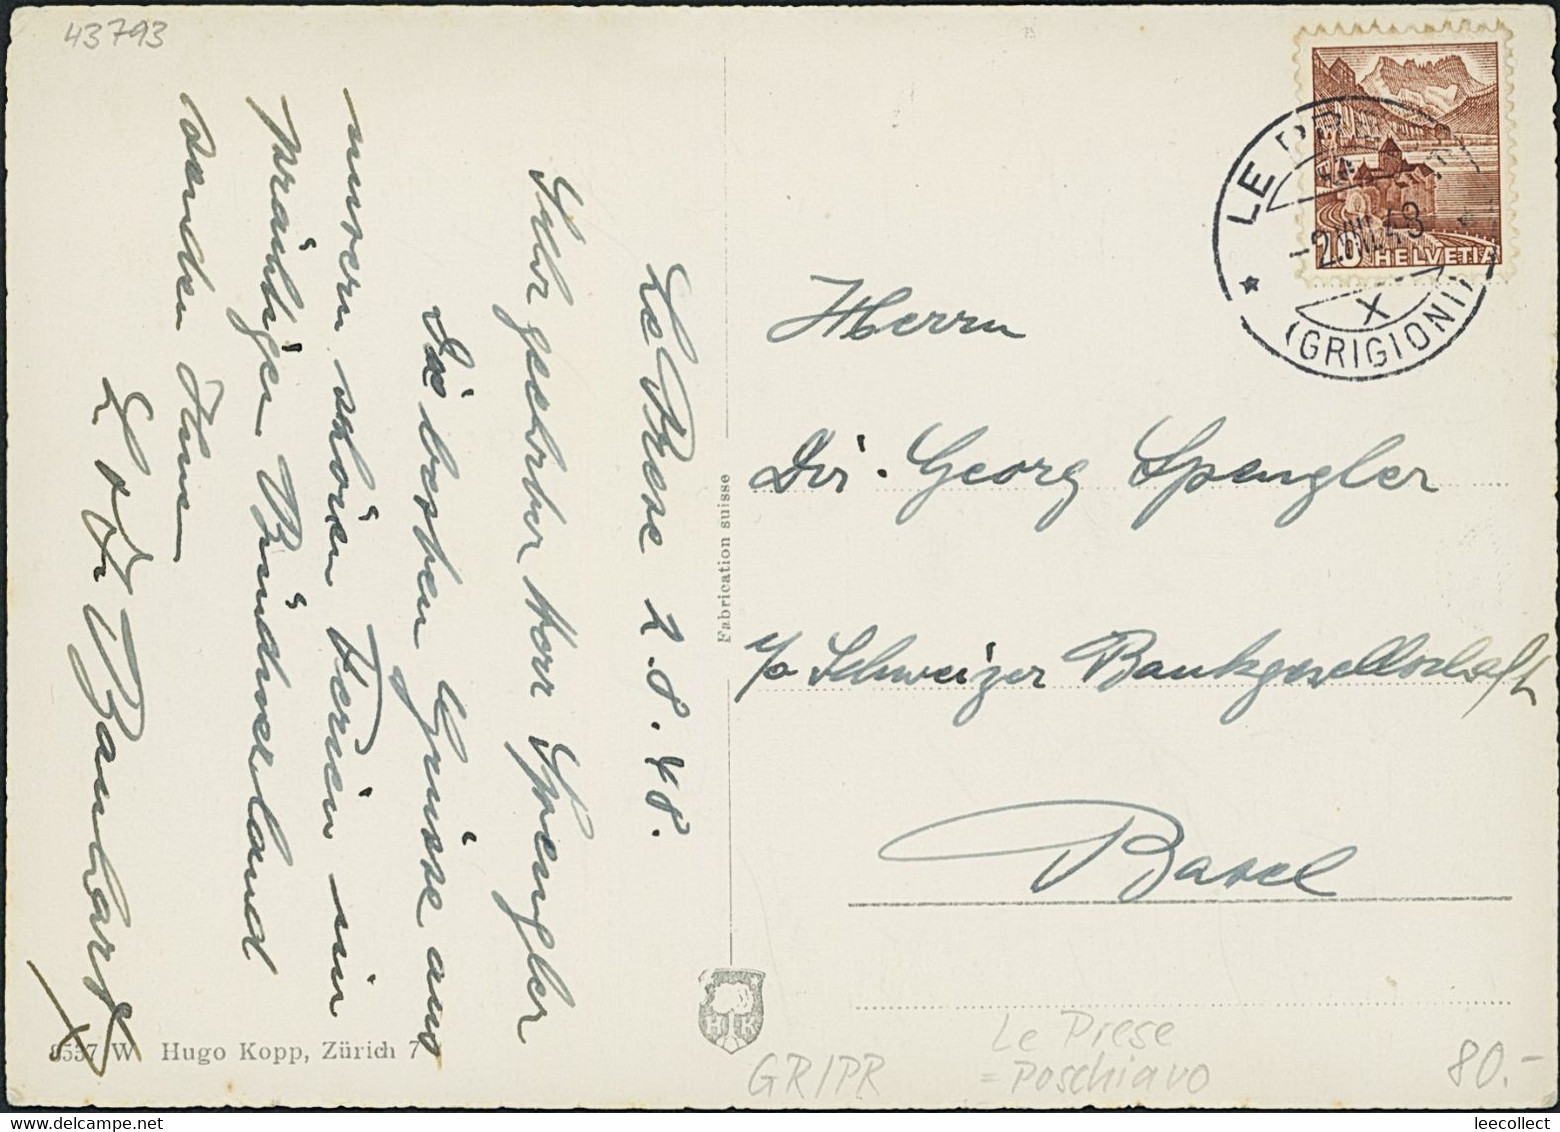 43793
Le Prese 2.8.48.
Sehr geehrter Herr Spengler
Die besten Grüsse aus
unsern schönen Ferien im
prächtigen Bündnerland
senden Ihnen
Banhart
Fabrication suisse
HK
8557 W Hugo Kopp, Zürich 7
LE PRESE
-2.VIII.48
X
(GRIGIONI)
20 HELVETIA
Herrn
Dir. Georg Spengler
c/o Schweizer Bankgesellschaft
Basel
GR/PR
Le Prese
= Poschiavo
80.-
leecollect